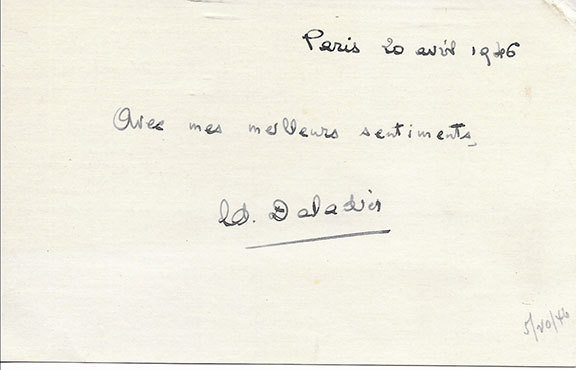 Paris 20 avril 1946
Avec mes meilleurs sentiments,
Ed. Daladier
5/20/46